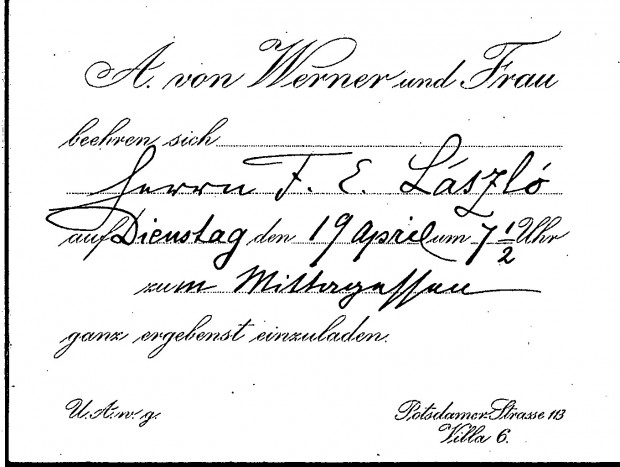 A. von Werner und Frau
beehren sich
Herrn F. E. László
auf Dienstag den 19 April um 7 1/2 Uhr
zum Mittagessen
ganz ergebenst einzuladen.
U. A. w. g.
Potsdamer-Strasse 113
Villa 6.